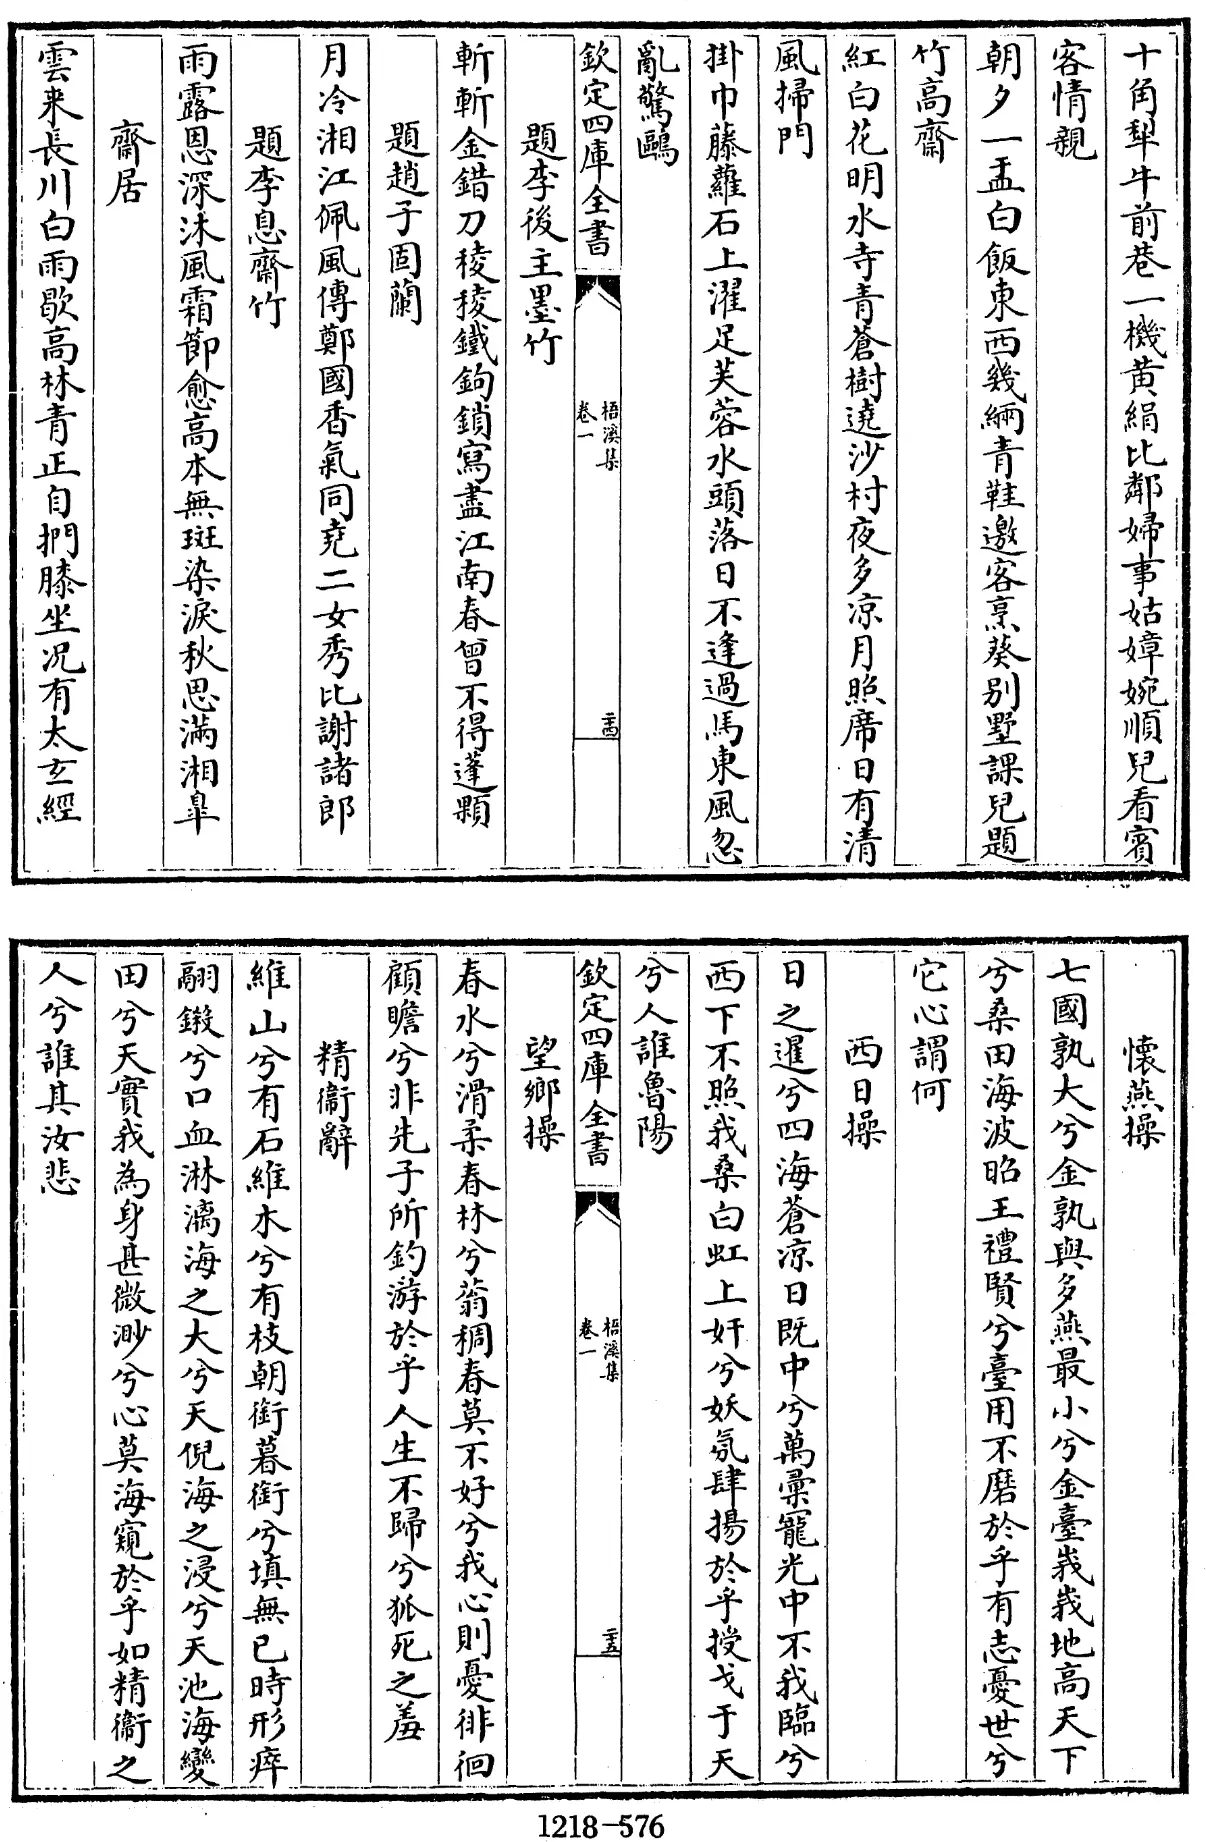 十角犁牛前巷一機黄絹比鄰婦事姑嫜婉順兒看賓
客情親
朝夕一盂白飯東西幾緉青鞋邀客烹葵别墅課兒題
竹高齋
紅白花明水寺青蒼樹遶沙村夜多凉月照席日有清
風掃門
掛巾藤蘿石上濯足芙蓉水頭落日不逢過馬東風忽
亂驚鷗
欽定四庫全書
梧溪集
卷一
二十四
題李後主墨竹
斬斬金錯刀稜稜鐵鉤鎖寫盡江南春曾不得蓬顆
題趙子固蘭
月冷湘江佩風傳鄭國香氣同堯二女秀比謝諸郎
題李息齋竹
雨露恩深沐風霜節愈高本無斑染淚秋思滿湘臯
齋居
雲来長川白雨歇高林青正自捫膝坐况有太玄經
懷燕操
七國孰大兮金孰與多燕最小兮金臺峩峩地高天下
兮桑田海波昭王禮賢兮臺用不磨於乎有志憂世兮
它心謂何
西日操
日之暹兮四海蒼凉日既中兮萬彚寵光中不我臨兮
西下不照我桑白虹上奸兮妖氛肆揚於乎授戈于天
兮人誰魯陽
欽定四庫全書
梧溪集
卷一
二十五
望鄉操
春水兮滑柔春林兮蓊稠春莫不好兮我心則憂徘徊
顧瞻兮非先子所釣游於乎人生不歸兮狐死之羞
精衞辭
維山兮有石維木兮有枝朝銜暮銜兮填無已時形瘁
翮鎩兮口血淋漓海之大兮天倪海之浸兮天池海變
田兮天實我為身甚微渺兮心莫海窺於乎如精衞之
人兮誰其汝悲
1218-576